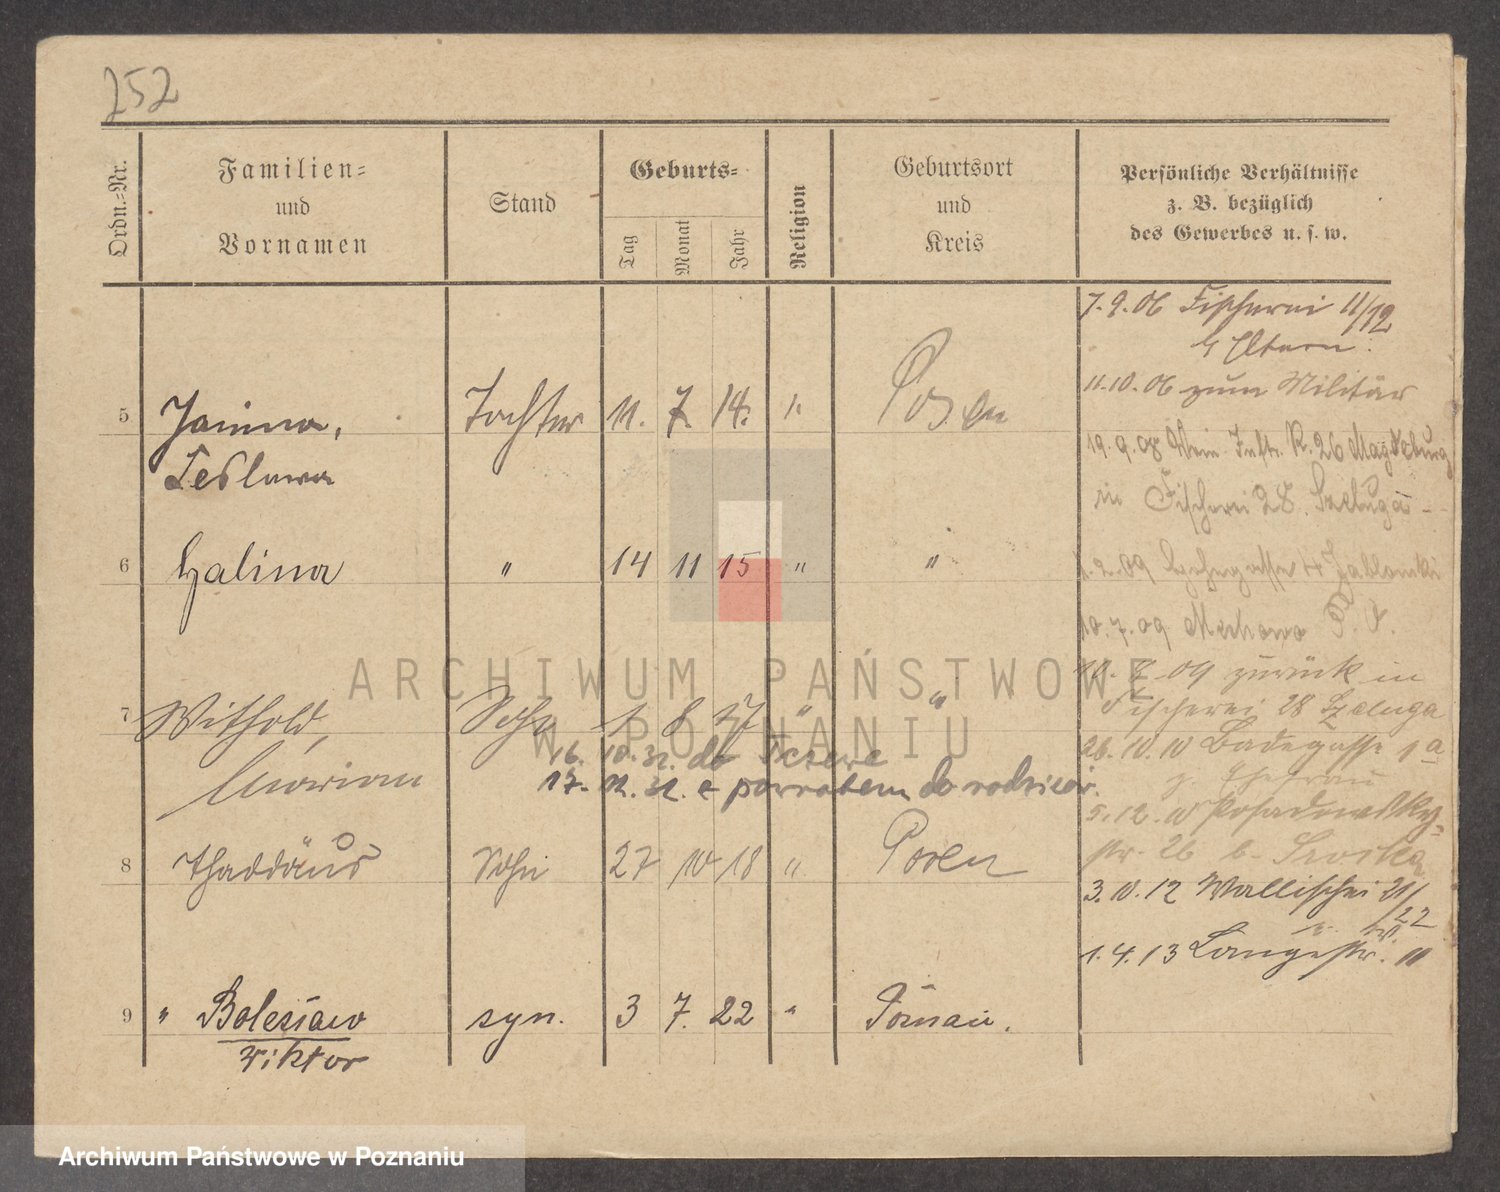 252
Ordn.=Nr.
Familien=
und
Vornamen
Stand
Geburts=
Tag
Monat
Jahr
Religion
Geburtsort
und
Kreis
Persönliche Verhältnisse
z. B. bezüglich
des Gewerbes u. s. w.
7. 9. 06 Fischerei 11/12
b/ Eltern.
11.10.06 zum Militär
19. 9. 08 Inftr. R. 26 Magdeburg
in Fischerei 28. Szeluga
1. 2. 09 Jablonski
10. 7. 09
10. 8. 09 zurück in
Fischerei 28 Szeluga
26. 10. 10 Badegasse 1a
z. Ehefrau
5. 12. 10 Posadowsky=
str. 26 b.
3. 10. 12 Wallischei 21/22
1. 4. 13 Langestr. 11
5 Janina, Tochter 11. 7. 14. " Posen
Ceslawa
6 Halina " 14 11 15 " "
7 Withold, Sohn 1 8 17 " "
Marian
16. 10. 31. do Tczewa
17. 12. 31. z powrotem do rodziców.
8 Thaddäus Sohn 27 10 18 " Posen
9 " Bolesław syn. 3 7. 22 " Poznań.
Wiktor
ARCHIWUM PAŃSTWOWE
W POZNANIU
Archiwum Państwowe w Poznaniu